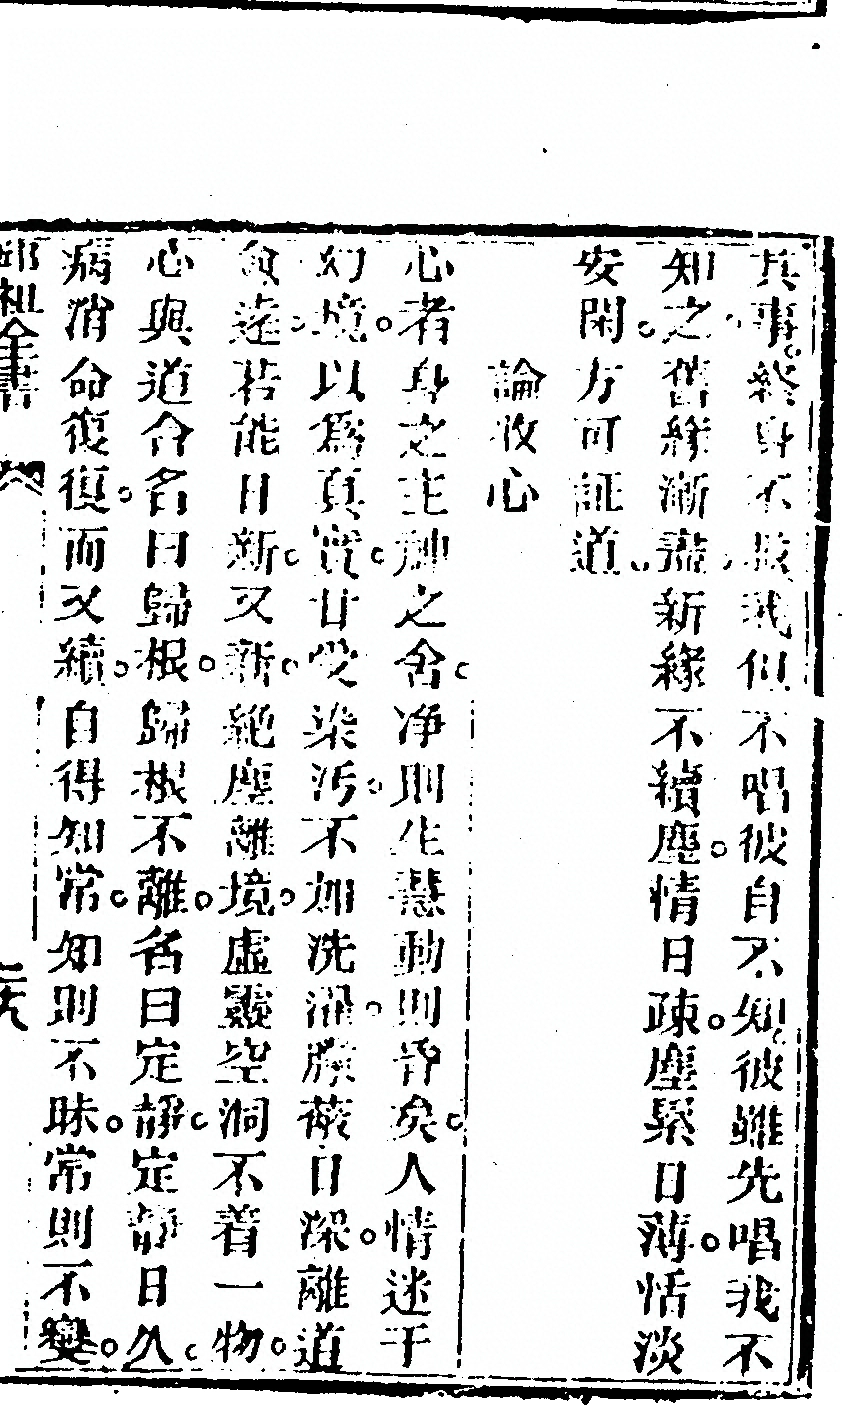 其事終身不服我但不唱彼自不知彼雖先唱我不
知之舊緣漸盡新緣不續塵情日疎塵累日薄恬淡
安閑方可証道
論收心
心者身之主神之舍净則生慧動則昏矣人情迷于
幻境以爲真實甘受染汚不知洗濯朦蔽日深離道
愈遠若能日新又新絶塵離境虛靈空洞不着一物
心與道合名曰歸根歸根不離名曰定靜定靜日久
病消命復復而又續自得知常知則不昧常則不變
邱祖全書
二十九